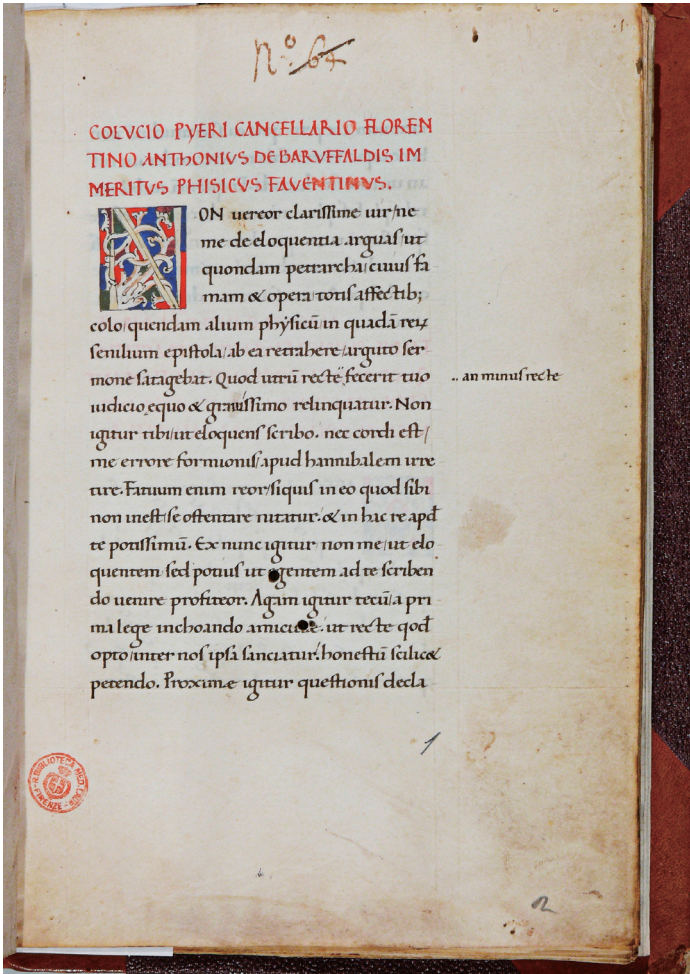 nº 64
COLVCIO PYERI CANCELLARIO FLOREN
TINO ANTHONIVS DE BARVFFALDIS IM
MERITVS PHISICVS FAVENTINVS.
NON uereor clarissime uir/ne
me de eloquentia arguas/ut
quondam petrarcha/cuius fa
mam & opera totis affectib;
colo/quendam alium phẏsicū/in quadā reꝝ
senilium epistola/ab ea retrahere/arguto ser
mone satagebat. Quod utrū recte fecerit tuo
.. an minus recte
iudicio equo & grauissimo relinquatur. Non
igitur tibi/ut eloquens scribo. nec cordi est/
me errore formionis/apud hannibalem irre
tire. Fatuum enim reor/siquis in eo quod sibi
non inest/se ostentare nitatur. & in hac re apd̄
te potissimū. Ex nunc igitur non me/ut elo
quentem/sed potius ut egentem ad te scriben
do uenire profiteor. Agam igitur tecū/a pri
ma lege inchoando amicitiæ. ut recte qod̄
opto/inter nos ipsa sanciatur. honestū scilic&
petendo. Proximæ igitur questionis decla
1
R. BIBLIOTECA MED. LAUR. FIRENZE